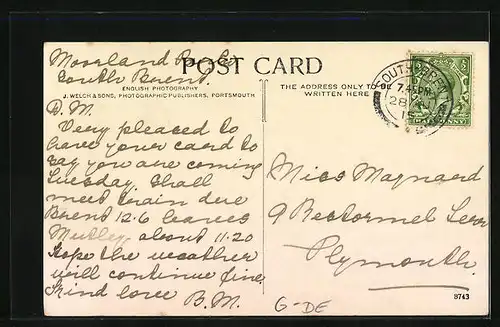 Moorland
POST CARD
South Brent.
ENGLISH PHOTOGRAPHY
J. WELCH & SONS, PHOTOGRAPHIC PUBLISHERS, PORTSMOUTH
THE ADDRESS ONLY TO BE
WRITTEN HERE
SOUTH BRENT
7.45PM
28
D.M.
Very pleased to
have your card to
say you are coming
Tuesday. Shall
meet train due
Brent 12.6 leaves
Mutley about 11.20
Hope the weather
will continue fine.
Kind love B.M.
Miss Maynard
9 Restormel Terr
Plymouth.
G-DE
8743